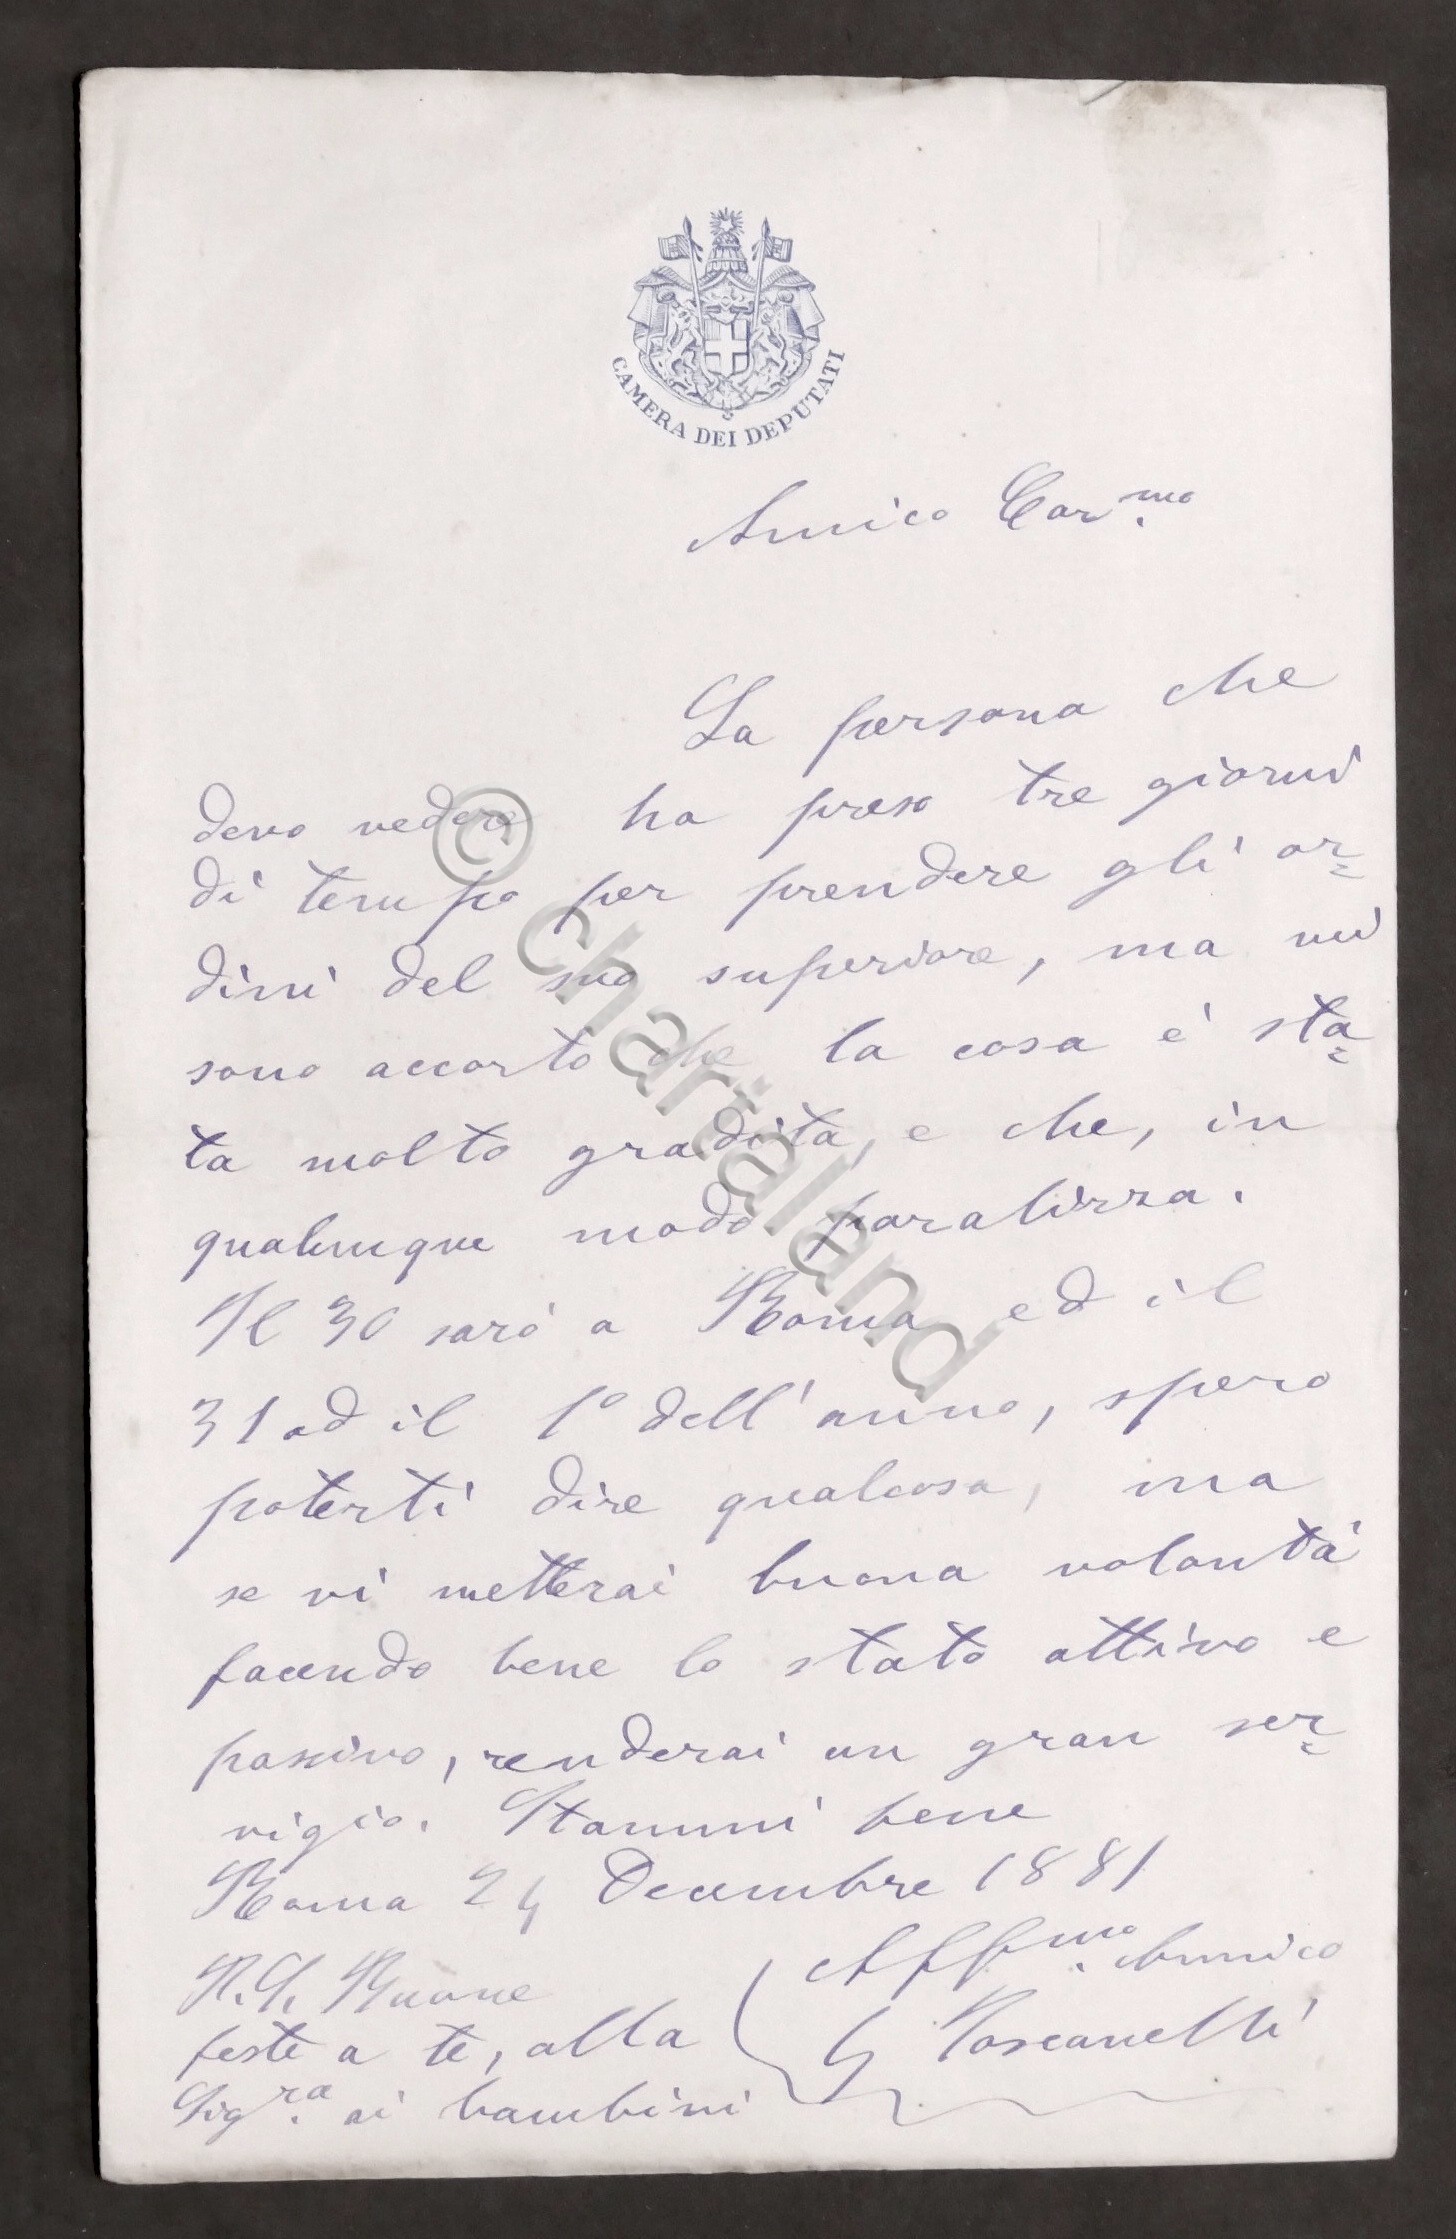 CAMERA DEI DEPUTATI
Amico Car.mo
La persona che
devo vedere ha preso tre giorni
di tempo per prendere gli or=
dini del suo superiore, ma mi
sono accorto che la cosa è sta=
ta molto gradita, e che, in
qualunque modo paralizza.
Il 30 sarò a Roma ed il
31 od il 1º dell'anno, spero
poterti dire qualcosa, ma
se vi metterai buona volontà
facendo bene lo stato attivo e
passivo, renderai un gran ser=
vigio. Stammi bene
Roma 24 Decembre 1881
Aff.mo Amico
G Toscanelli
P.S. Buone
feste a te, alla
Sig.ra ai bambini
© chartaland